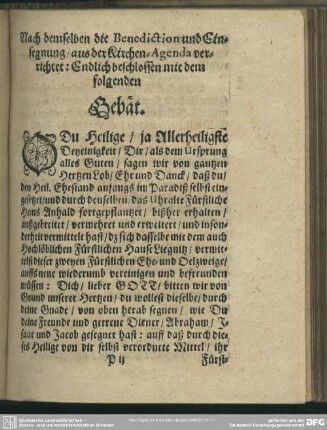 Nach demselben die Benediction und Ein-
segnung / aus der Kirchen-Agenda ver-
richtet: Endlich beschlossen mit dem
folgenden
Gebät.
O Du Heilige / ja Allerheiligste
Dreyeinigkeit / Dir / als dem Ursprung
alles Guten / sagen wir von gantzen
Hertzen Lob / Ehr und Danck / daß du /
den Heil. Ehestand anfangs im Paradiß selbst ein-
gesetzet / und durch denselben / das Uhralte Fürstliche
Haus Anhald fortgepflantzet / bißher erhalten /
außgebreitet / vermehret und erweitert / und inson-
derheit vermittelt hast / dz sich dasselbe mit dem auch
Hochlöblichen Fürstlichen Hause Liegnitz / vermit-
telst dieser zweyen Fürstlichen Ehe- und Oelzweige /
auffs neue wiederumb vereinigen und befreunden
müssen: Dich / lieber GOTT / bitten wir von
Grund unserer Hertzen / du wollest dieselbe / durch
deine Gnade / von oben herab segnen / wie Du
deine Freunde und getreue Diener / Abraham / J-
saac und Jacob gesegnet hast: auff daß durch die-
ses Heilige von dir selbst verordnete Mittel / ihr
P ij
Fürst-